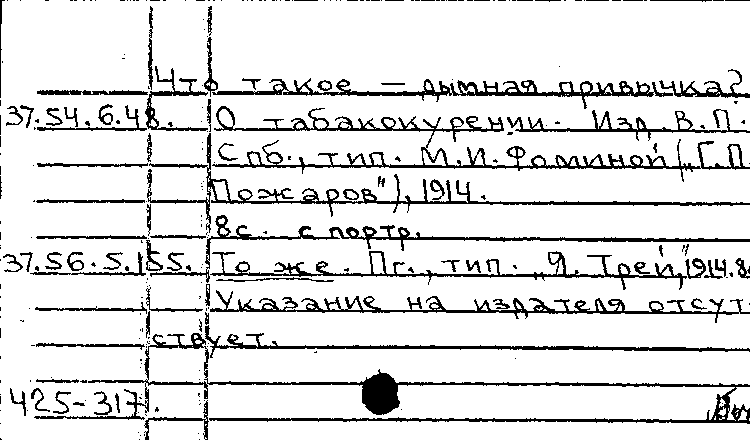 Что такое — дымная привычка?
37.54.6.48. О табакокурении. Изд. В.П.
Спб., тип. М.И. Фоминой („Г.П.
Пожаров"), 1914.
8с. с портр.
37.56.5.155. То же. Пг., тип. „Я. Трей," 1914. 8с
Указание на издателя отсут
ствует.
425-317.